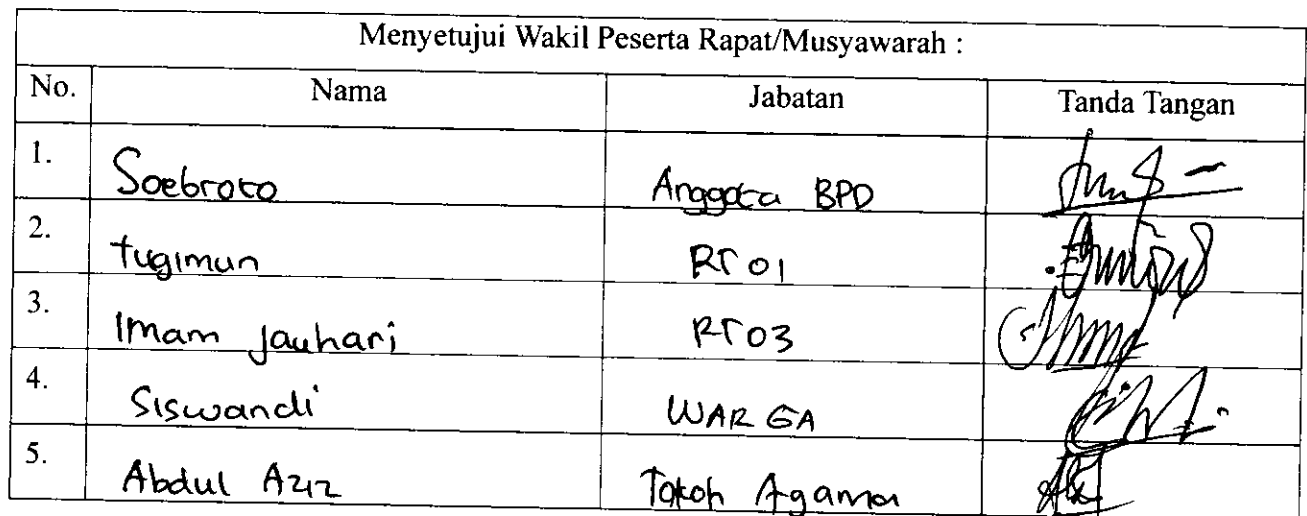 Menyetujui Wakil Peserta Rapat/Musyawarah :
No. Nama Jabatan Tanda Tangan
1. Soebroto Anggota BPD
2. tugimun RT 01
3. Imam Jauhari RT 03
4. Siswandi WARGA
5. Abdul Aziz Tokoh Agama